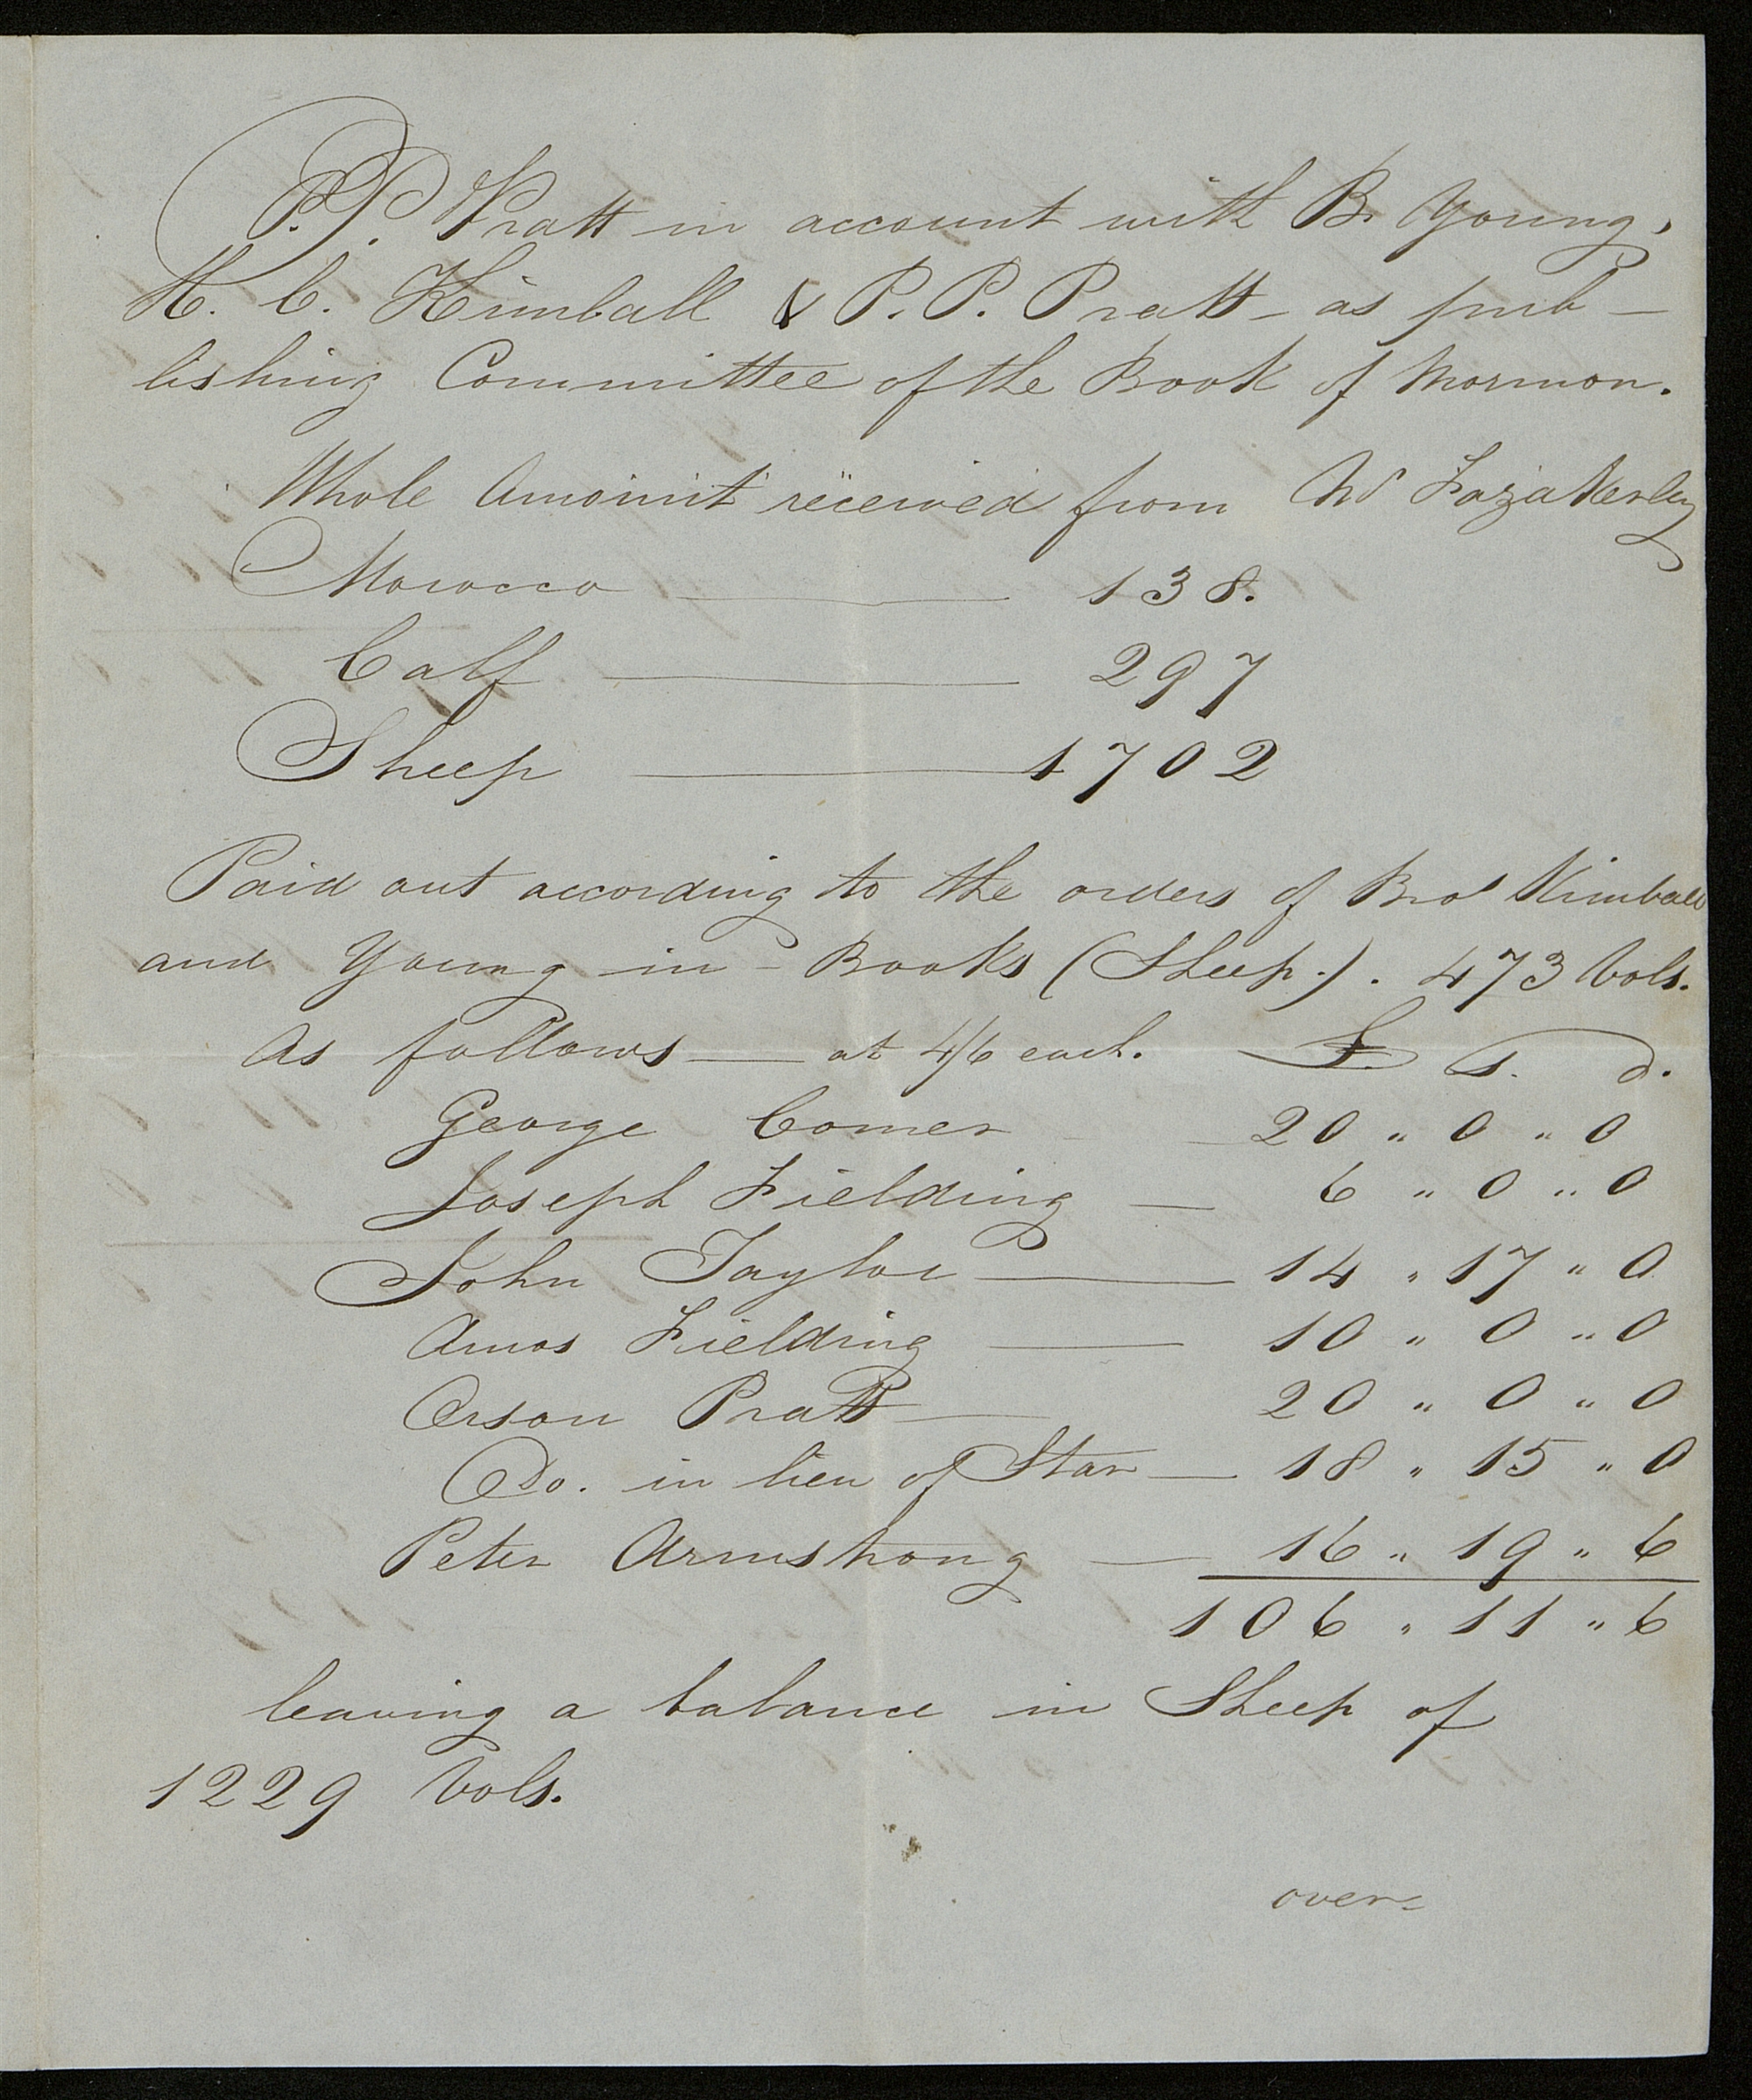 P. P. Pratt in account with B. Young,
H. C. Kimball & P. P. Pratt - as pub-
lishing Committee of the Book of Mormon.
Whole Amount received from W Fazakerley
Morocco — 138.
Calf — 297
Sheep — 1702
Paid out according to the orders of Bro Kimball
and Young in - Books (Sheep.). 473 Vols.
As follows — at 4/6 each. £. s. d.
George Comer — 20 " 0 " 0
Joseph Fielding — 6 " 0 " 0
John Taylor — 14 " 17 " 0
Amos Fielding — 10 " 0 " 0
Orson Pratt — 20 " 0 " 0
Do. in lieu of Star — 18 " 15 " 0
Peter Armstrong — 16 " 19 " 6
106 " 11 " 6
leaving a balance in Sheep of
1229 Vols.
over